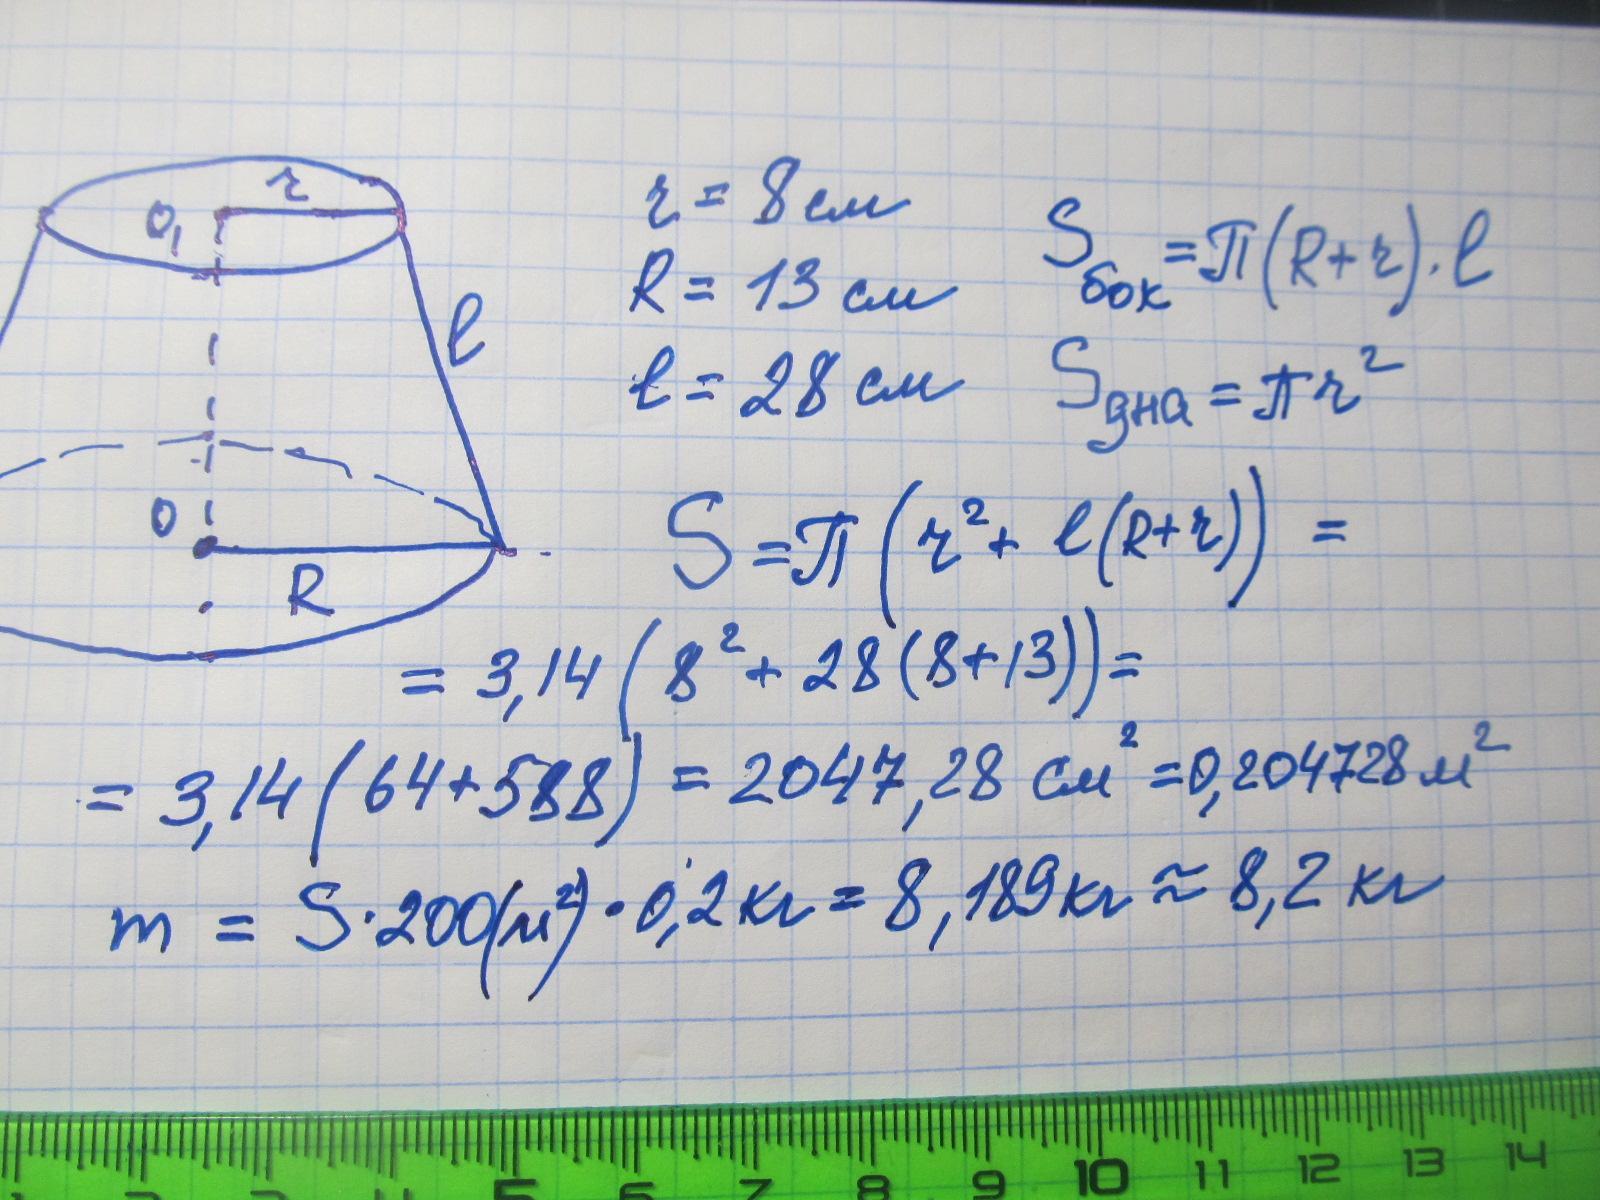 r = 8 см
R = 13 см
l = 28 см
Sбок = π(R+r)·l
Sдна = πr²
O₁ r
l
O
R
S = π(r² + l(R+r)) =
= 3,14(8² + 28(8+13)) =
= 3,14(64+588) = 2047,28 см² = 0,204728 м²
m = S·200(м²)·0,2 кг = 8,189 кг ≈ 8,2 кг
1 2 3 4 5 6 7 8 9 10 11 12 13 14